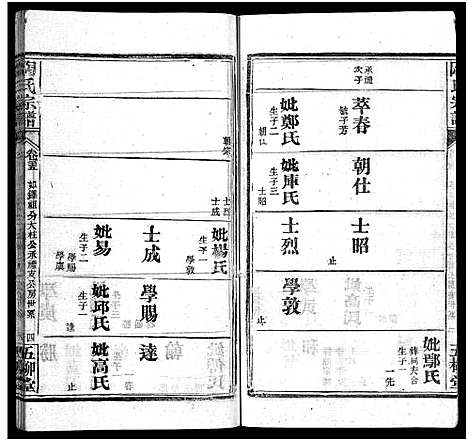 承禮次子
萃春
號子芳
妣鄭氏
生子二
朝仕
朝宗
朝仕
妣庫氏
生子三
士昭
士烈
士成
士昭
止
士烈
學敦
止
妣鄢氏
生子一
先
士成
妣楊氏
生子二
學敦
學賜
妣易
生子二
學賜
學廣
學賜
妣邱氏
生子一
達
達
妣高氏
止
陶氏宗譜
卷五
分大柱公承禮支公房世系
四
五柳堂